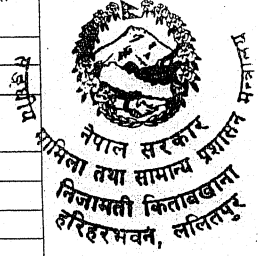 नेपाल सरकार
सङ्घीय मामिला तथा सामान्य प्रशासन मन्त्रालय
निजामती किताबखाना
हरिहरभवन, ललितपुर